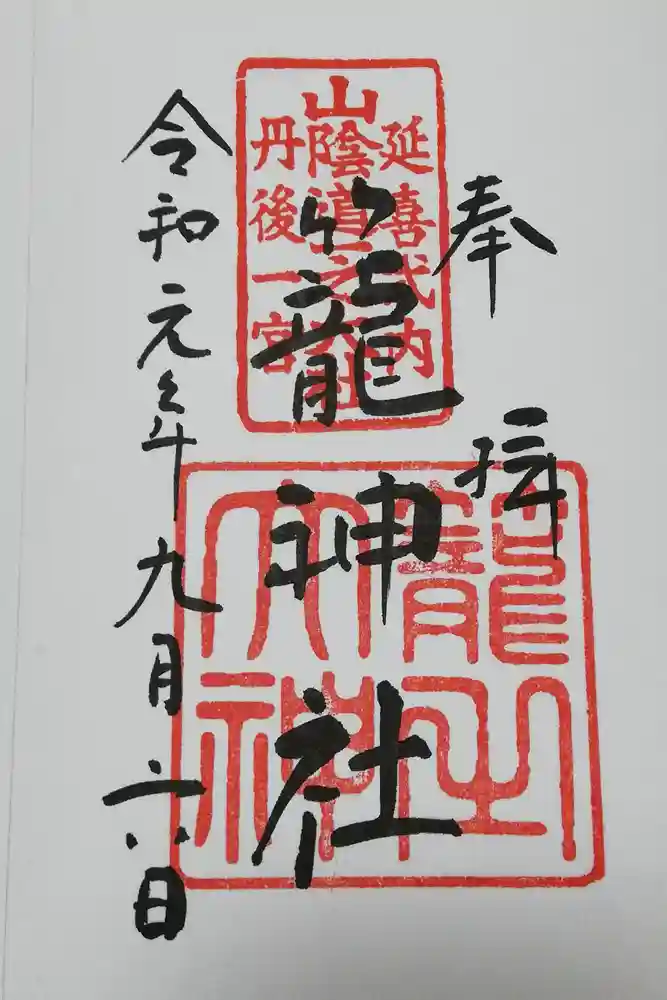 奉拝
延喜式内
山陰道一之大社
丹後一宮
籠神社
籠之大神
令和元年九月六日